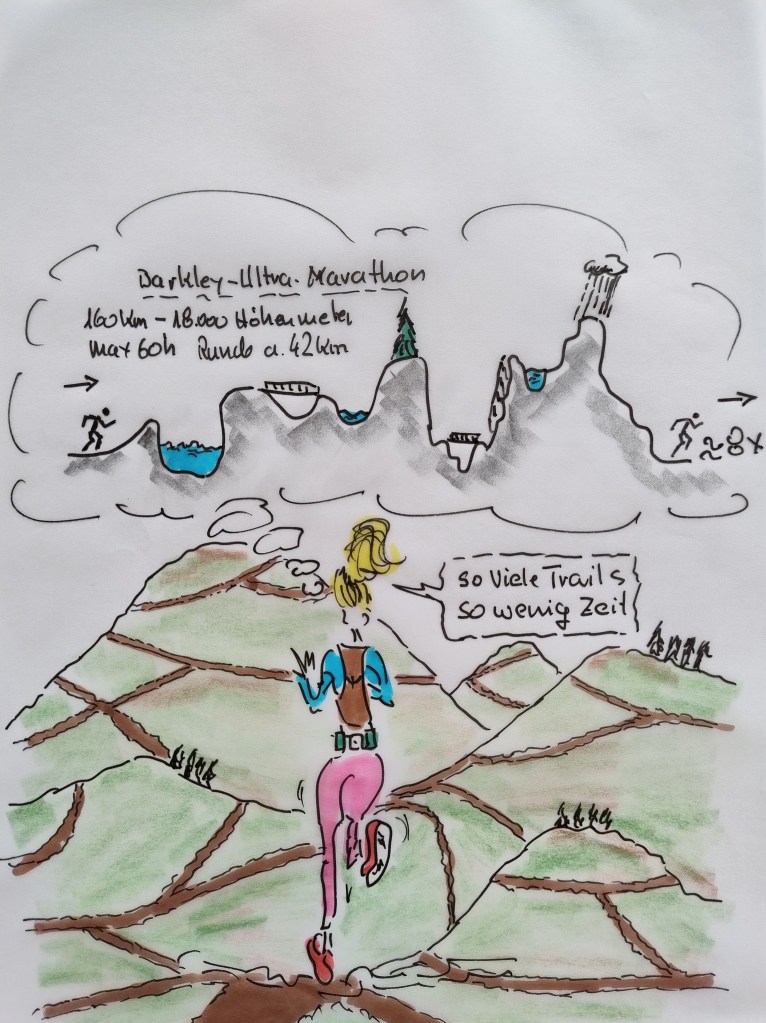 Barkley-Ultra-Marathon
160km - 18.000 Höhenmeter
max 60h Runde a. 42km
≈ 8x
so viele Trails
so wenig Zeit